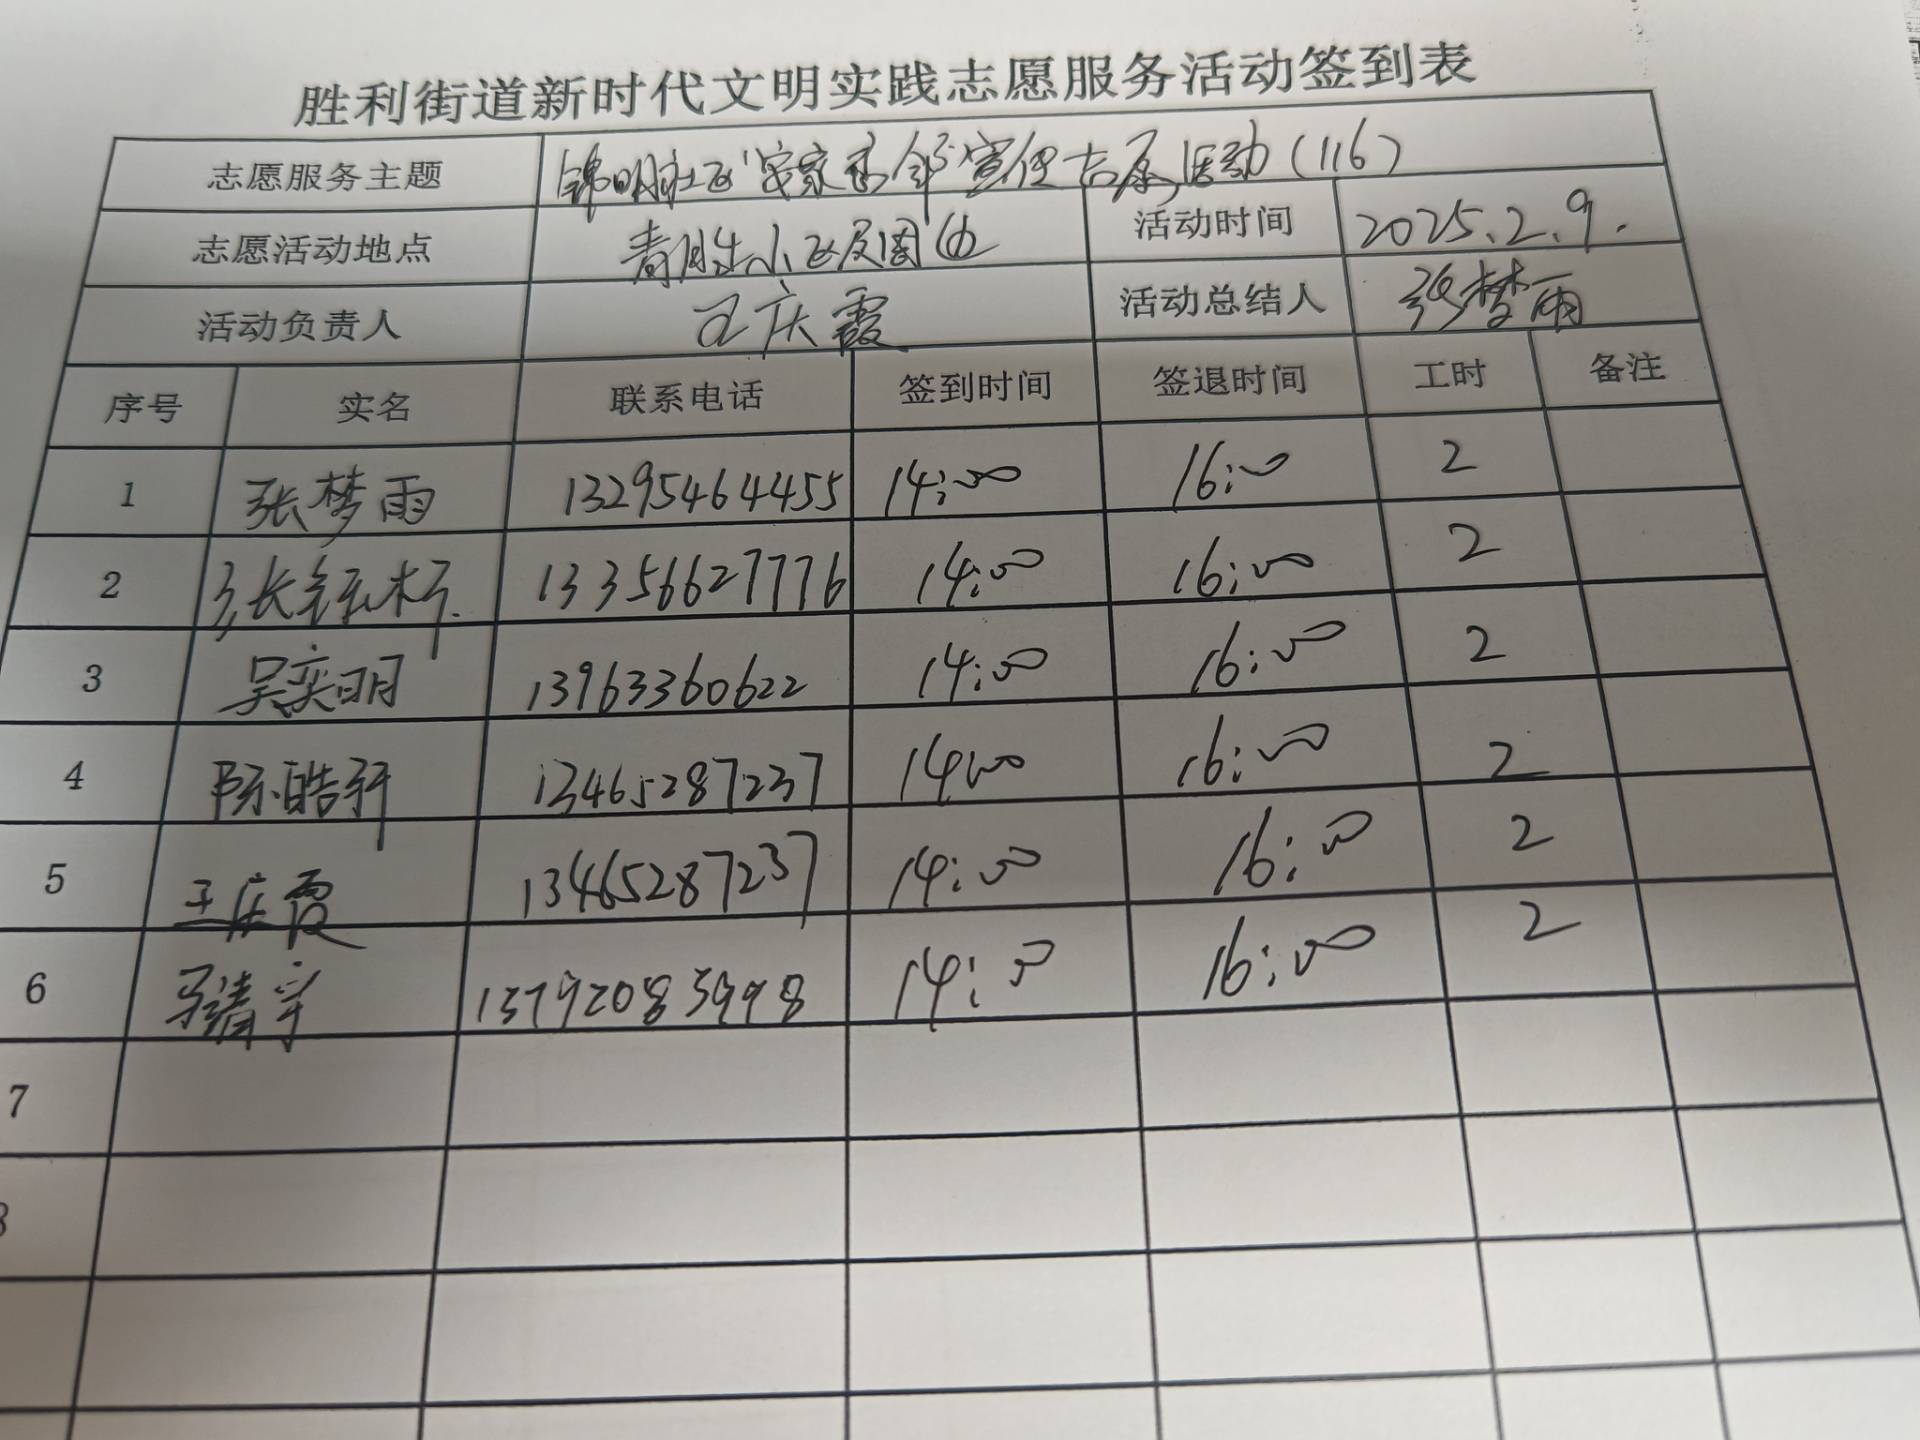 胜利街道新时代文明实践志愿服务活动签到表
志愿服务主题 锦明社区 活动(116)
志愿活动地点 小区及周边 活动时间 2025.2.9.
活动负责人 王庆霞 活动总结人 张梦雨
序号 实名 联系电话 签到时间 签退时间 工时 备注
1 张梦雨 13295464455 14:00 16:00 2
2 张 13356627776 14:00 16:00 2
3 吴奕明 13963360622 14:00 16:00 2
4 陈皓轩 13465287237 1400 16:00 2
5 王庆霞 13465287237 14:00 16:00 2
6 14:00 16:00 2
7
8